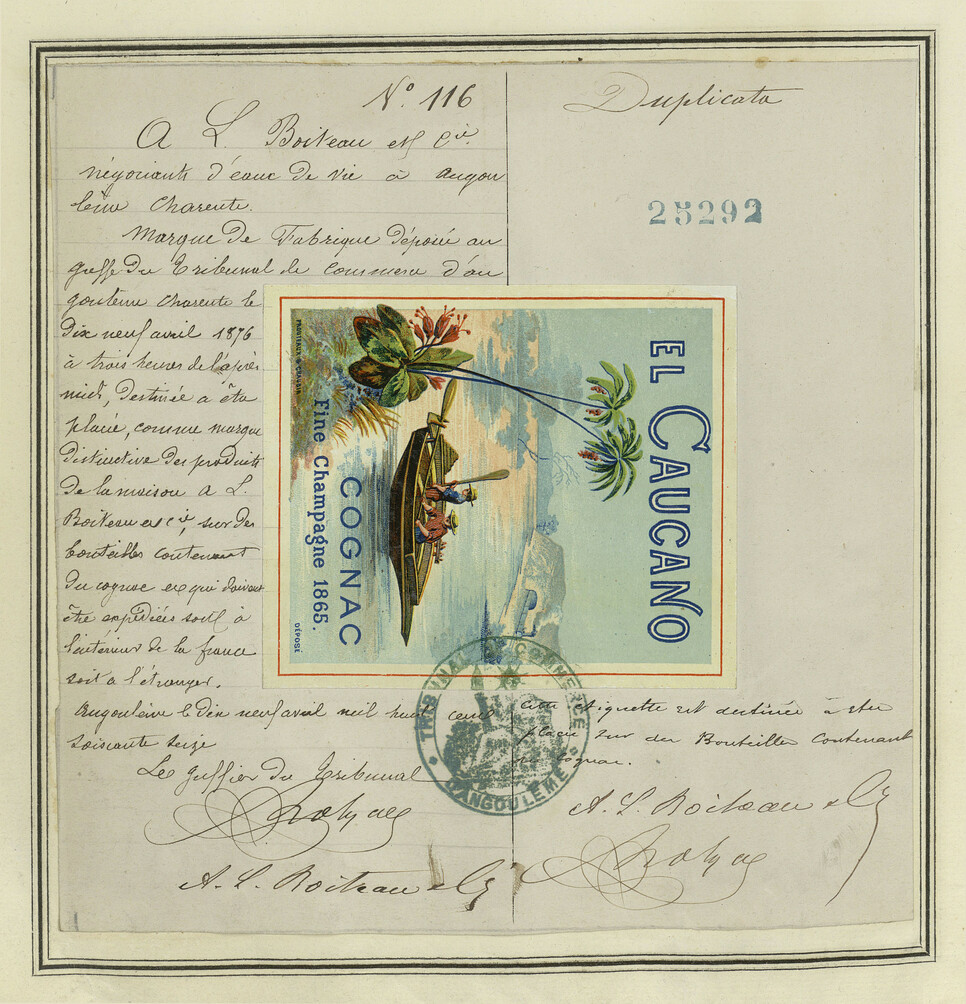 Nº 116
A L. Boiteau et Cie
négociants d'eaux de vie à Angou
lême Charente.
Marque de Fabrique déposée au
greffe du Tribunal de Commerce d'An
goulême Charente le
dix neuf avril 1876
à trois heures de l'après
midi, destinée à être
placée, comme marque
distinctive des produits
de la maison A L.
Boiteau et Cie, sur des
bouteilles contenant
du cognac et qui doivent
être expédiées soit à
l'intérieur de la france
soit à l'étranger.
Angoulême le dix neuf avril mil huit cent
soixante seize
Le greffier du Tribunal
A. L. Boiteau et Cie
Duplicata
25292
EL CAUCANO
COGNAC
Fine Champagne 1865.
DÉPOSÉ
TRIBUNAL DE COMMERCE
D'ANGOULÊME
Cette étiquette est destinée à être
placée sur des Bouteilles contenant
du Cognac.
A. L. Boiteau et Cie